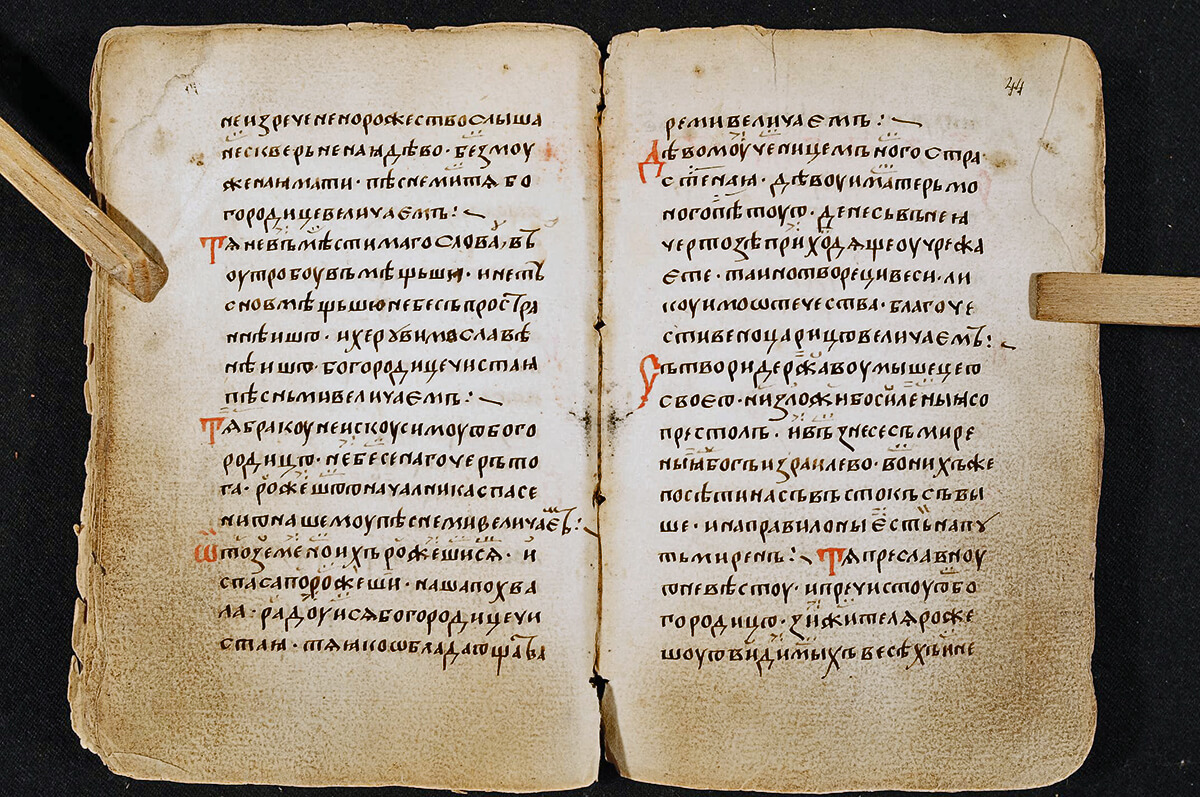 неизречененорожествослыша
нескверьненаꙗдѣво · безмоу
женаꙗмати · пѣснемитѧбо
городицевеличаємъ :~
Тѧневъмѣстимагослова, въ
оутробоувъмѣщьши · инестъ
сновмѣщьшюнебесъпростра
ннѣишю · ихерувимославѣ
нѣишю · богородицечистаꙗ
пѣсньмивеличаємъ :~
Тѧбракоунеискоусимоуюбого
родицю · небесенагочерьто
га · рожешююначалникаспасе
ниюнашемоупѣснемивеличаємъ :~
Ѿтоземеноихърожешисѧ · и
спасапорожеши · нашапохва
ла · радоуисѧбогородицечи
стаꙗ · тѧꙗкоѡбладающаѧва
44
ремивеличаємъ :~
Дѣвомоученицемъногостра
стенаꙗ · дѣвоуиматерьмо
ногопѣтоую · денесьвънеꙗ
чертозѣприходѧщеоучрежа
єте · таинотворецивеси · ли
коуимоѡтечества · благоче
стивеноцарицювеличаємъ :~
Сътворидержавоумышецею
своєю · низложибосиленыꙗсо
престолъ · ивъзнесесъмире
ныꙗбогъизраилево · вонихъже
посѣтинасъвъстокъсъвы
ше · инаправилоныєстьнапу
тьмиренъ :~ Тѧпреславноу
юневѣстоу · ипречистоуюбо
городицю · зижителѧроже
шоуювидимыхъвесѣхъине